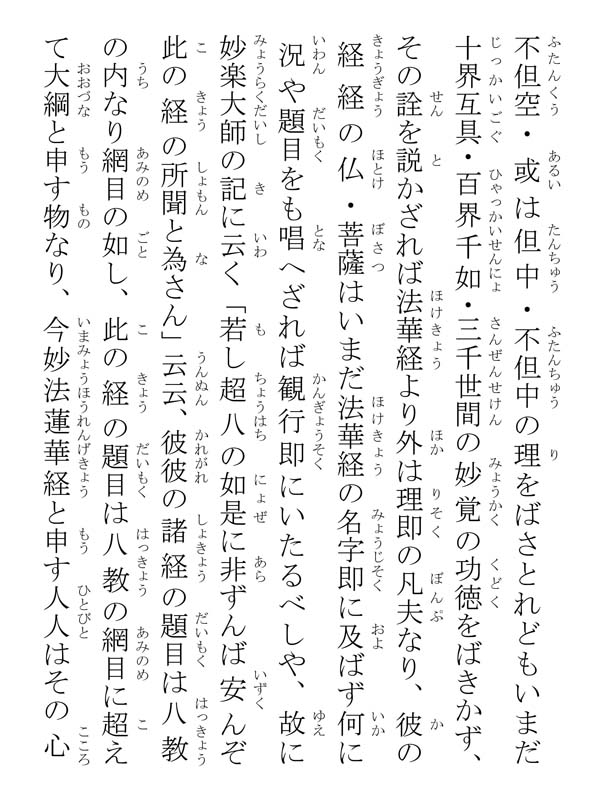 不但空・或は但中・不但中の理をばさとれどもいまだ
十界互具・百界千如・三千世間の妙覚の功徳をばきかず、
その詮を説かざれば法華経より外は理即の凡夫なり、彼の
経経の仏・菩薩はいまだ法華経の名字即に及ばず何に
況や題目をも唱へざれば観行即にいたるべしや、故に
妙楽大師の記に云く「若し超八の如是に非ずんば安んぞ
此の経の所聞と為さん」云云、彼彼の諸経の題目は八教
の内なり網目の如し、此の経の題目は八教の網目に超え
て大綱と申す物なり、今妙法蓮華経と申す人人はその心